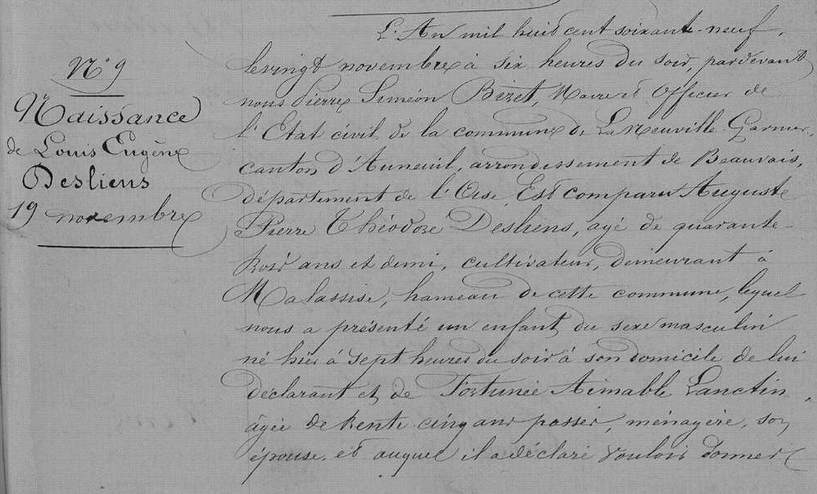 N° 9
Naissance
de Louis Eugène
Desliens
19 novembre
L'An mil huit cent soixante-neuf,
le vingt novembre à six heures du soir, pardevant
nous Pierre Siméon Bizet, Maire et Officier de
l'Etat civil de la commune de La Neuville-Garnier,
canton d'Auneuil, arrondissement de Beauvais,
département de l'Oise, Est comparu Auguste
Pierre Théodore Desliens, agé de quarante-
trois ans et demi, cultivateur, demeurant à
Malassise, hameau de cette commune, lequel
nous a présenté un enfant du sexe masculin
né hier à sept heures du soir à son domicile de lui
déclarant et de Fortunée Aimable Lanctin,
âgée de trente-cinq ans passés, ménagère, son
épouse, et auquel il a déclaré vouloir donner